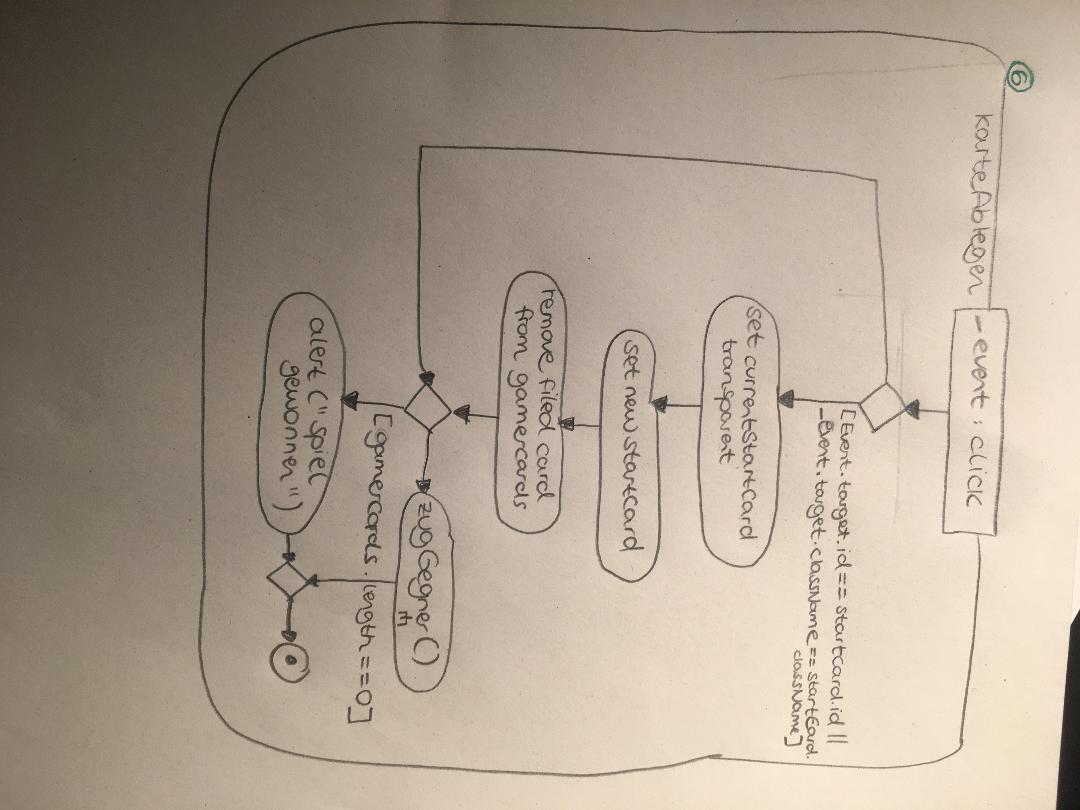 6
karteAblegen
_event: click
[Event.target.id == startcard.id ||
_Event.target.className == startCard.
className]
set currentStartCard
transparent
set newstartCard
remove filed card
from gamercards
zugGegner()
[gamercards.length == 0]
alert ("Spiel
gewonnen")